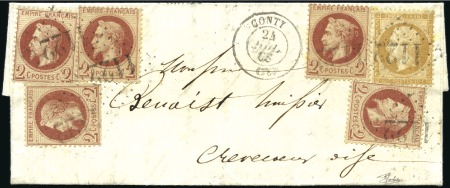 EMPIRE FRANÇAIS EMPIRE FRANÇAIS
2 POSTES 2 2 POSTES 2
EMPIRE FRANÇAIS
2 POSTES 2
CONTY
24
66
EMPIRE FRANÇAIS
2 POSTES 2
Monsieur
Benoist huissier
Crevecoeur oise
2 POSTES 2